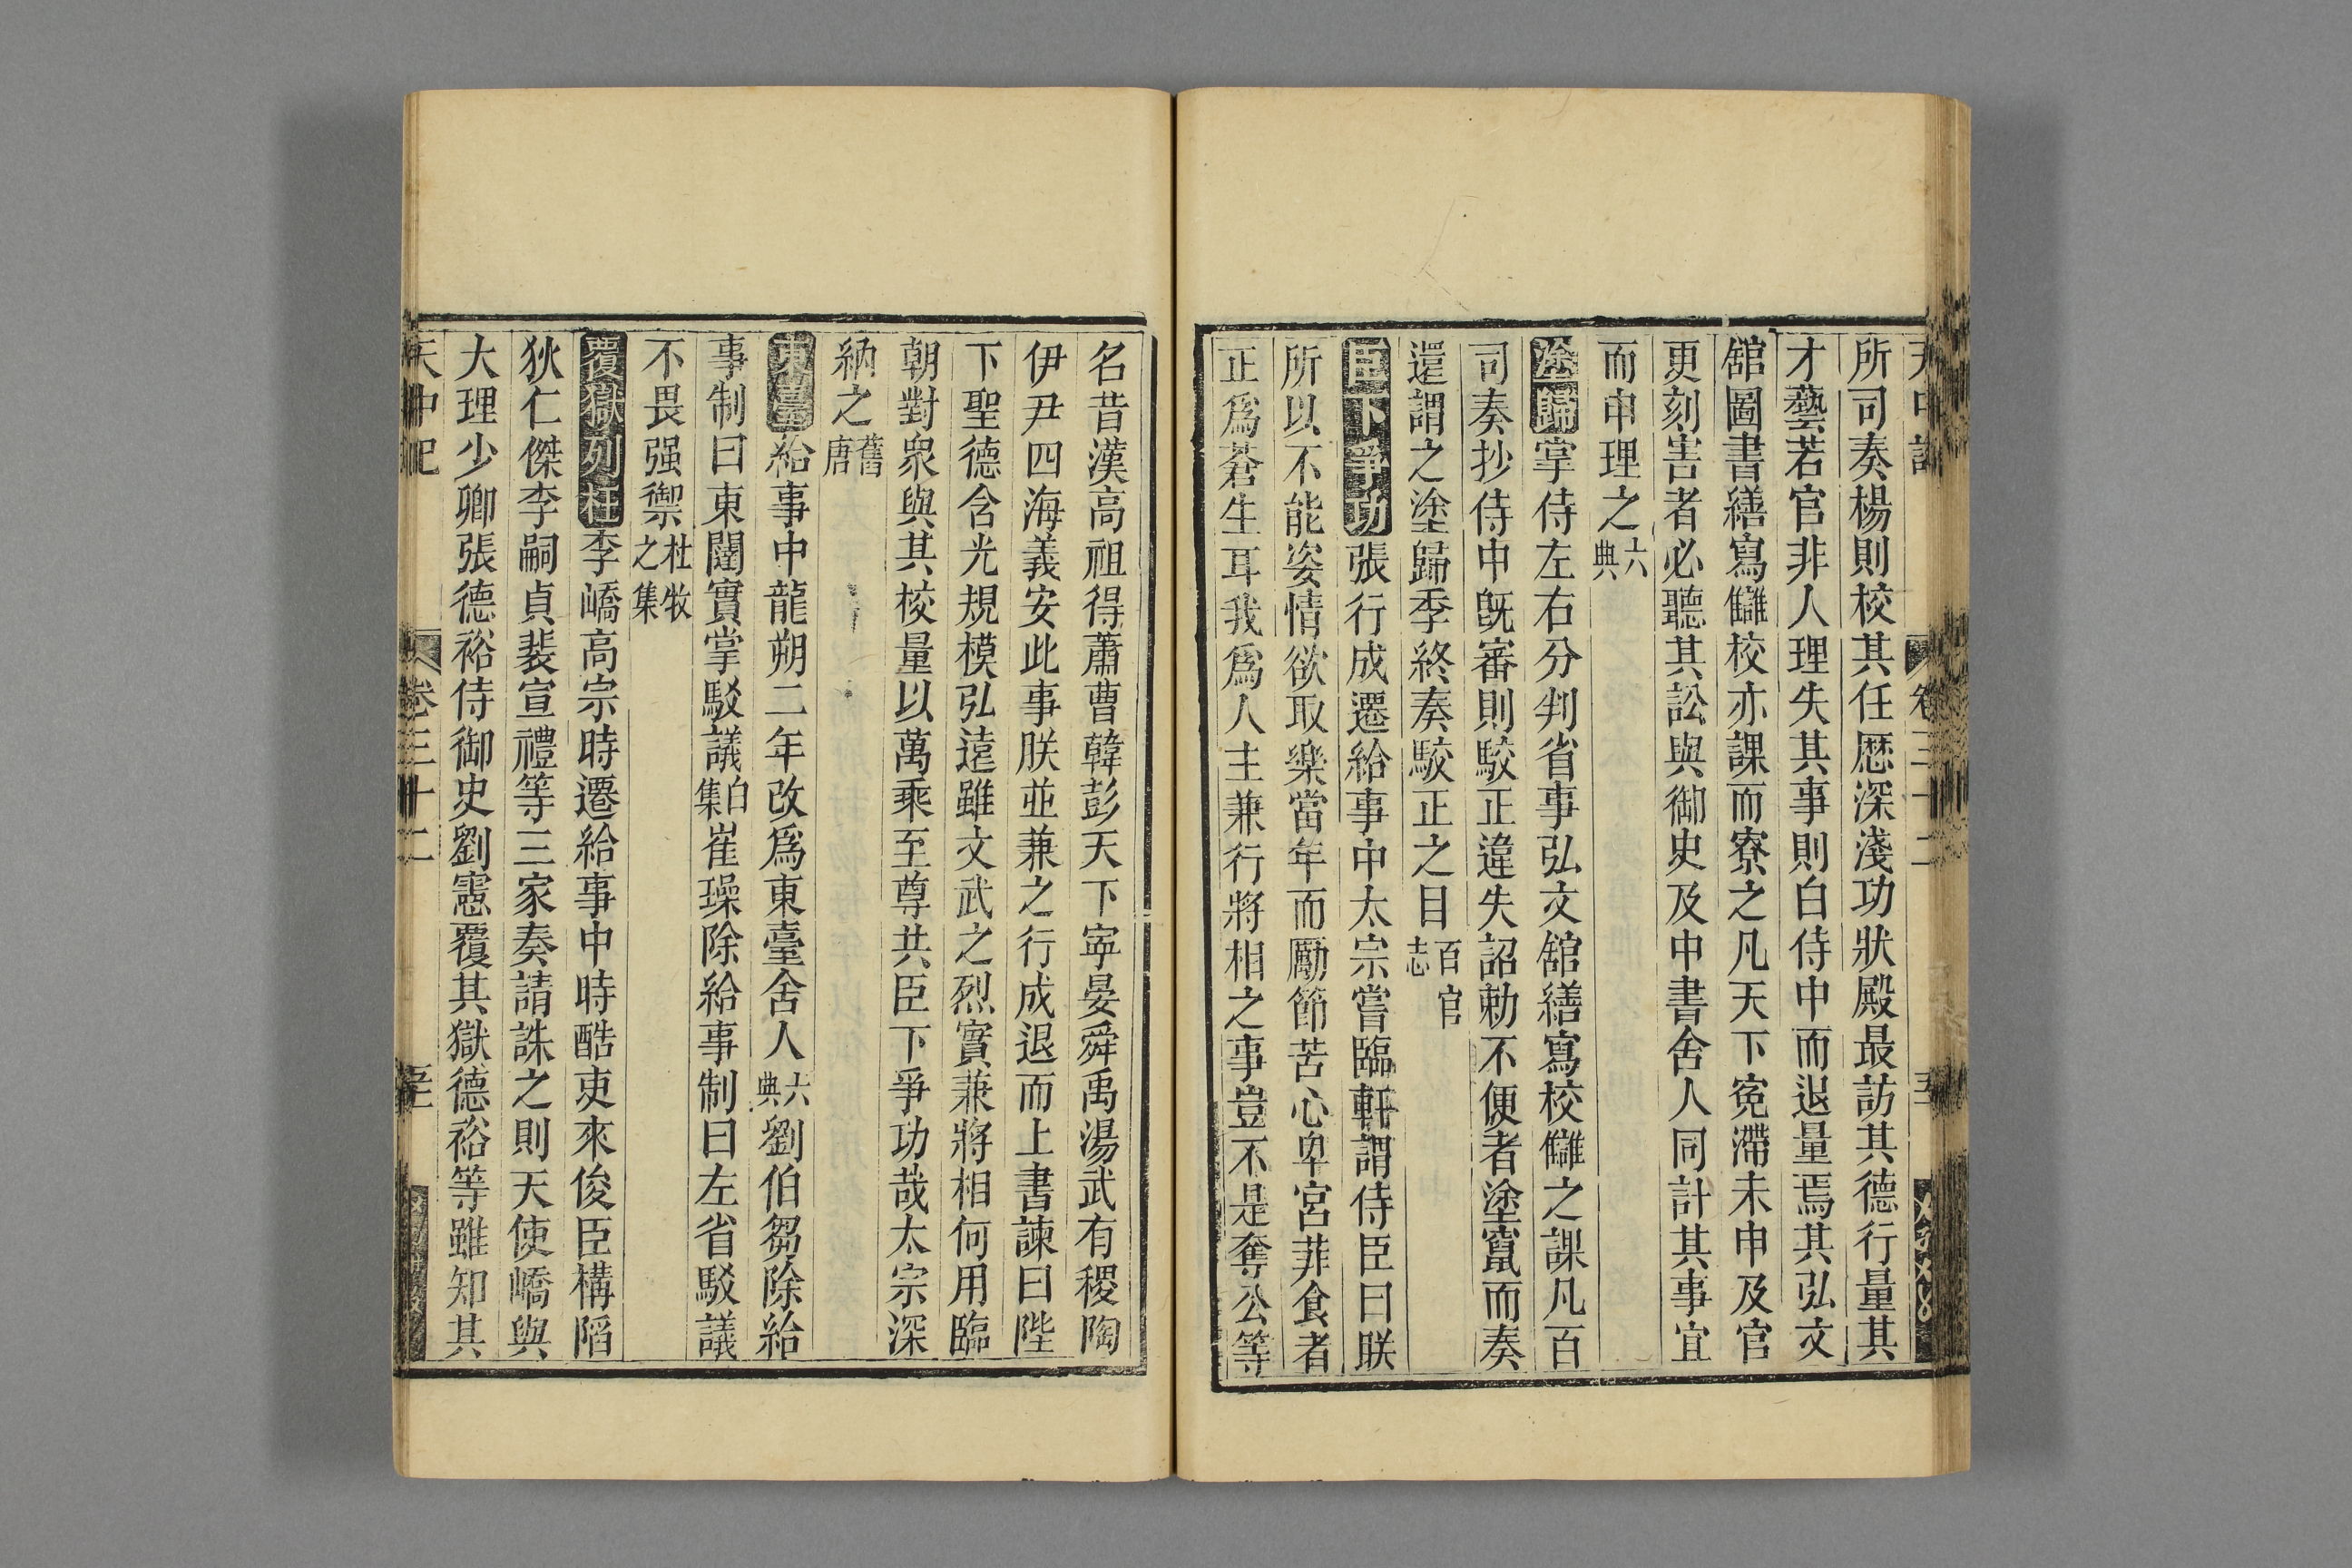 天中記 卷三十二 五
所司奏楊則校其任歷深淺功狀殿最訪其德行量其
才藝若官非人理失其事則白侍中而退量焉其弘文
舘圖書繕寫讎校亦課而寮之凡天下寃滯未申及官
吏刻害者必聽其訟與御史及中書舍人同計其事宜
而申理之六典
塗歸掌侍左右分判省事弘文舘繕寫校讎之課凡百
司奏抄侍中既審則駮正違失詔勅不便者塗竄而奏
還謂之塗歸季終奏駮正之目百官志
臣下爭功張行成遷給事中太宗嘗臨軒謂侍臣曰朕
所以不能姿情欲取樂當年而勵節苦心卑宮菲食者
正爲蒼生耳我爲人主兼行將相之事豈不是奪公等
名昔漢高祖得蕭曹韓彭天下寧晏舜禹湯武有稷陶
伊尹四海義安此事朕並兼之行成退而上書諫曰陛
下聖德含光規模弘遠雖文武之烈實兼將相何用臨
朝對衆與其校量以萬乘至尊共臣下爭功哉太宗深
納之舊唐
東臺給事中龍朔二年改爲東臺舍人六典劉伯芻除給
事制曰東闥實掌駁議白集崔璪除給事制曰左省駁議
不畏强禦杜牧之集
覆獄列枉李嶠高宗時遷給事中時酷吏來俊臣構陷
狄仁傑李嗣貞裴宣禮等三家奏請誅之則天使嶠與
大理少卿張德裕侍御史劉憲覆其獄德裕等雖知其
天中記 卷三十二